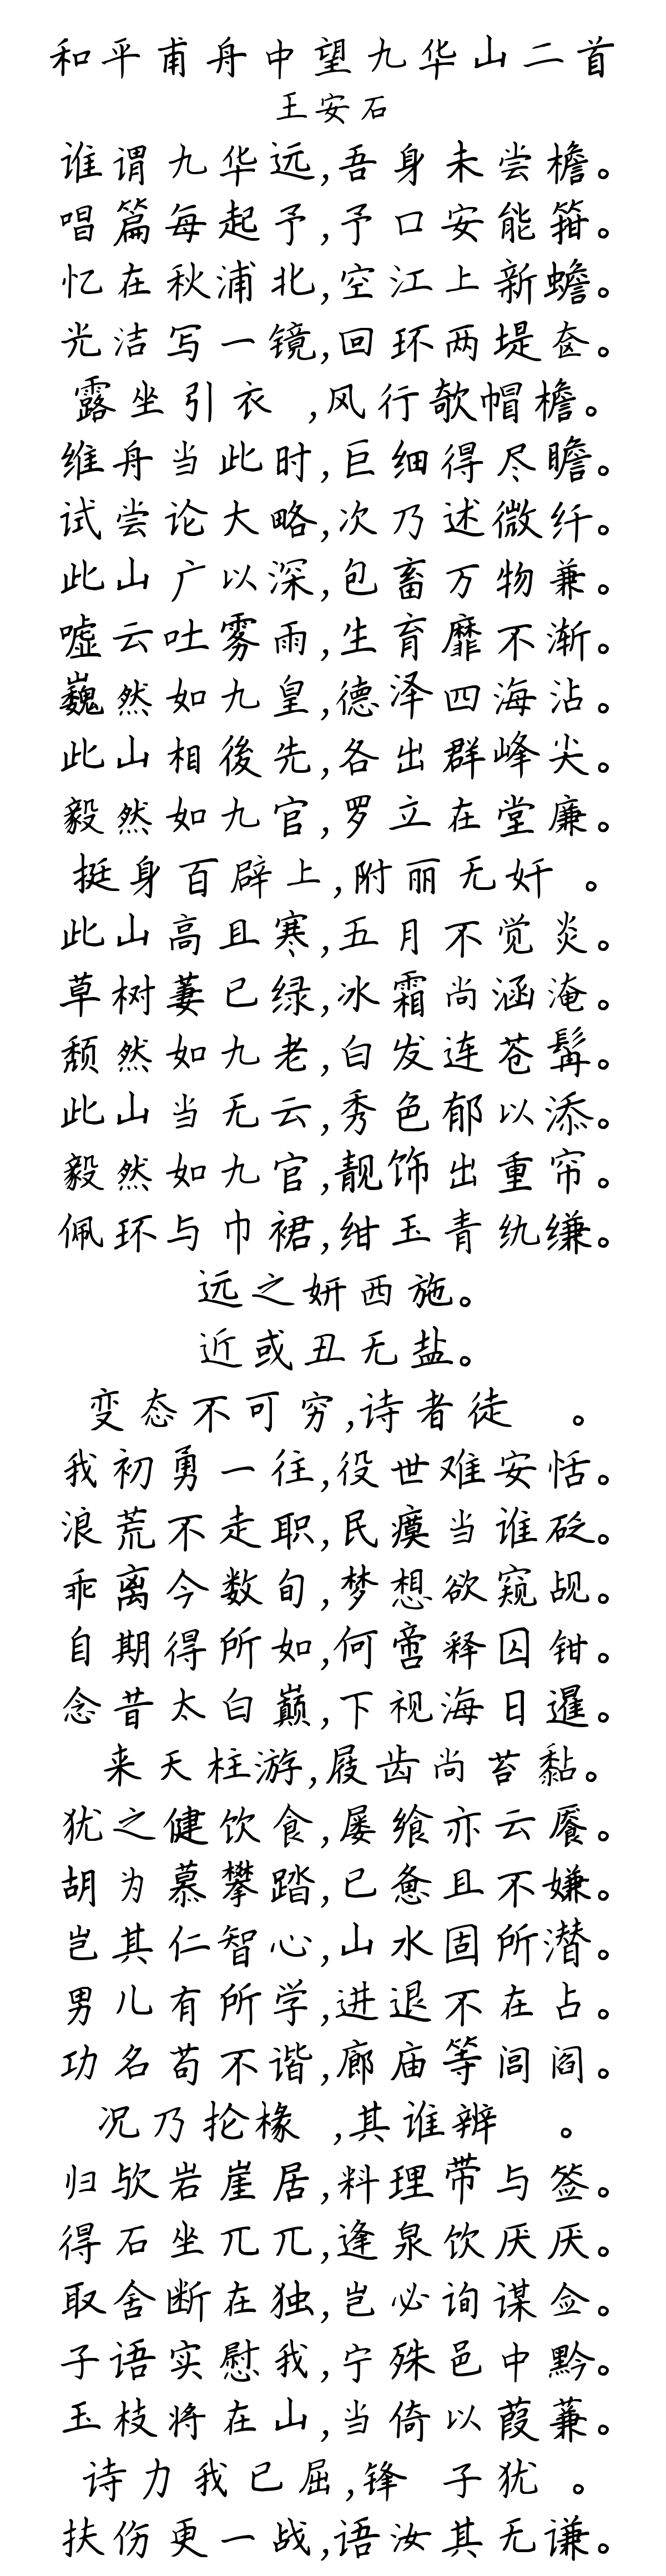 和平甫舟中望九华山二首
王安石
谁谓九华远,吾身未尝檐。
唱篇每起予,予口安能箝。
忆在秋浦北,空江上新蟾。
光洁写一镜,回环两堤奁。
露坐引衣 ,风行欹帽檐。
维舟当此时,巨细得尽瞻。
试尝论大略,次乃述微纤。
此山广以深,包畜万物兼。
嘘云吐雾雨,生育靡不渐。
巍然如九皇,德泽四海沾。
此山相後先,各出群峰尖。
毅然如九官,罗立在堂廉。
挺身百辟上,附丽无奸 。
此山高且寒,五月不觉炎。
草树萋已绿,冰霜尚涵淹。
颓然如九老,白发连苍髯。
此山当无云,秀色郁以添。
毅然如九官,靓饰出重帘。
佩环与巾裙,绀玉青纨缣。
远之妍西施。
近或丑无盐。
变态不可穷,诗者徒 。
我初勇一往,役世难安恬。
浪荒不走职,民瘼当谁砭。
乖离今数旬,梦想欲窥觇。
自期得所如,何啻释囚钳。
念昔太白巅,下视海日暹。
来天柱游,屐齿尚苔黏。
犹之健饮食,屡飨亦云餍。
胡为慕攀踏,已惫且不嫌。
岂其仁智心,山水固所潜。
男儿有所学,进退不在占。
功名苟不谐,廊庙等闾阎。
况乃抡椽 ,其谁辨 。
归欤岩崖居,料理带与签。
得石坐兀兀,逢泉饮厌厌。
取舍断在独,岂必询谋佥。
子语实慰我,宁殊邑中黔。
玉枝将在山,当倚以葭蒹。
诗力我已屈,锋 子犹 。
扶伤更一战,语汝其无谦。